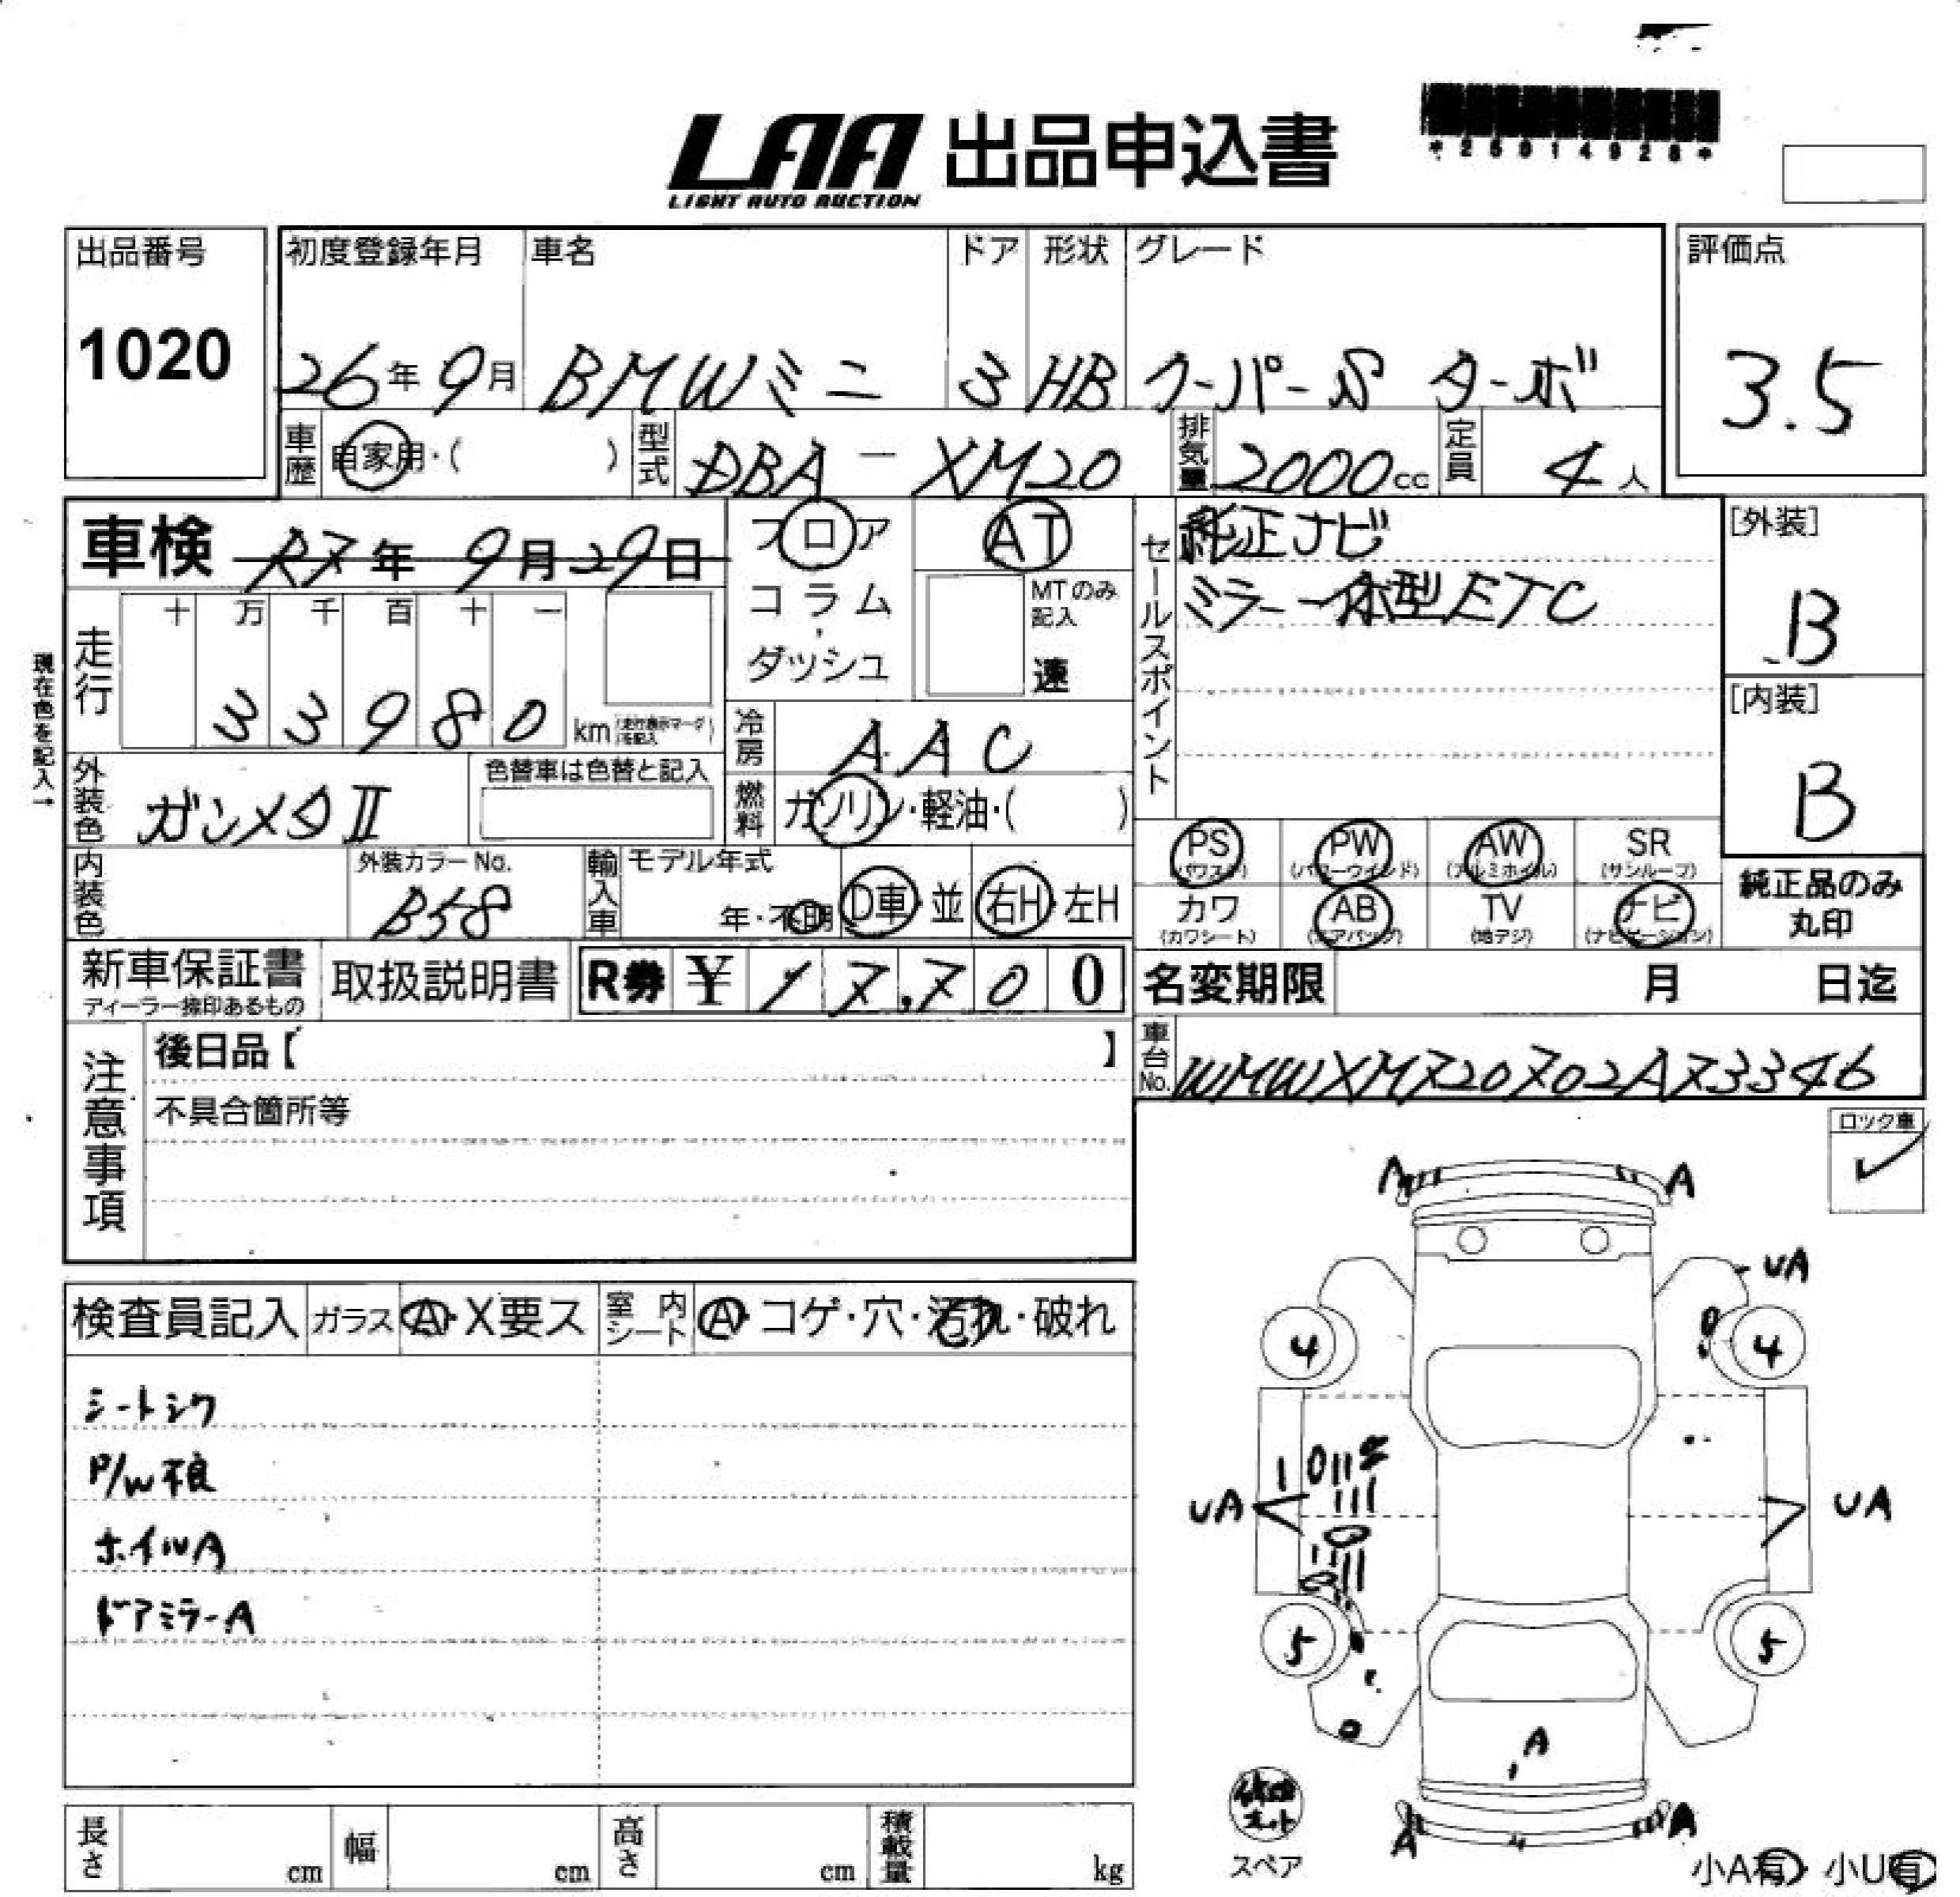 LAA 出品申込書
LIGHT AUTO AUCTION
*25014928*
出品番号
1020
初度登録年月 車名 ドア 形状 グレード
26年 9月 BMWミニ 3 HB クーパーS ターボ
評価点
3.5
車歴 自家用・( ) 型式 DBA-XM20 排気量 2000cc 定員 4人
車検 R7年 9月29日
フロア
コラム
ダッシュ
AT
MTのみ記入
速
セールスポイント
純正ナビ
ミラー一体型ETC
[外装]
B
[内装]
B
現在色を記入→
走行
十 万 千 百 十 一
3 3 9 8 0 km
冷房 AAC
外装色 ガンメタII
色替車は色替と記入
燃料 ガソリン・軽油・( )
内装色
外装カラーNo.
B58
輸入車 モデル年式
年・不明 D車・並 右H・左H
PS PW AW SR
(パワステ) (パワーウインド) (アルミホイル) (サンルーフ)
カワ AB TV ナビ
(カワシート) (エアバッグ) (地デジ) (ナビゲーション)
純正品のみ
丸印
新車保証書
ディーラー捺印あるもの
取扱説明書
R券 ¥ 17,700
名変期限 月 日迄
車台No. WMWXM720702A73346
注意事項
後日品【 】
不具合箇所等
ロック車
検査員記入 ガラス A・X要ス 室内シート A・コゲ・穴・汚れ・破れ
シートシワ
P/W不良
ホイルA
ドアミラーA
A A
UA
4 4
UA UA
5 5
A
A A
スペア
小A有・小U有
長さ cm 幅 cm 高さ cm 積載量 kg